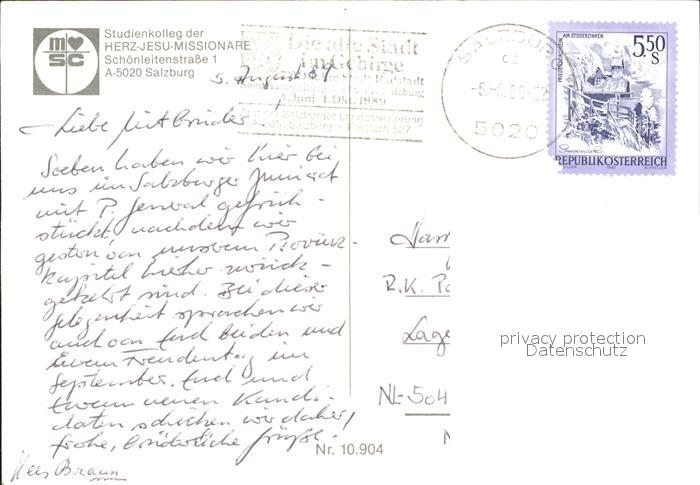 m
sc
Studienkolleg der
HERZ-JESU-MISSIONARE
Schönleitenstraße 1
A-5020 Salzburg
Die alte Stadt
im Gebirge
Radstadt
1. Juni - 1. Okt. 1989
Salzburger Landesregierung
Postfach 527
SALZBURG
5020
AM STODERZINKEN
5,50
S
REPUBLIK ÖSTERREICH
5. August 89
Liebe Mitbrüder
Soeben haben wir hier bei
uns im Salzburger Juniorat
mit P. General gefrüh-
stückt, nachdem wir
gestern von unserem Provinz-
kapitel hieher zurück-
gekehrt sind. Bei dieser
Gelegenheit sprachen wir
auch von Euch beiden und
Eurem Freudentag im
September. Euch und
Eurem neuen Kandi-
daten schicken wir daher
frohe, brüderliche Grüße.
Braun
R.K. Pa
Lage
NL-504
Nr. 10.904
privacy protection
Datenschutz